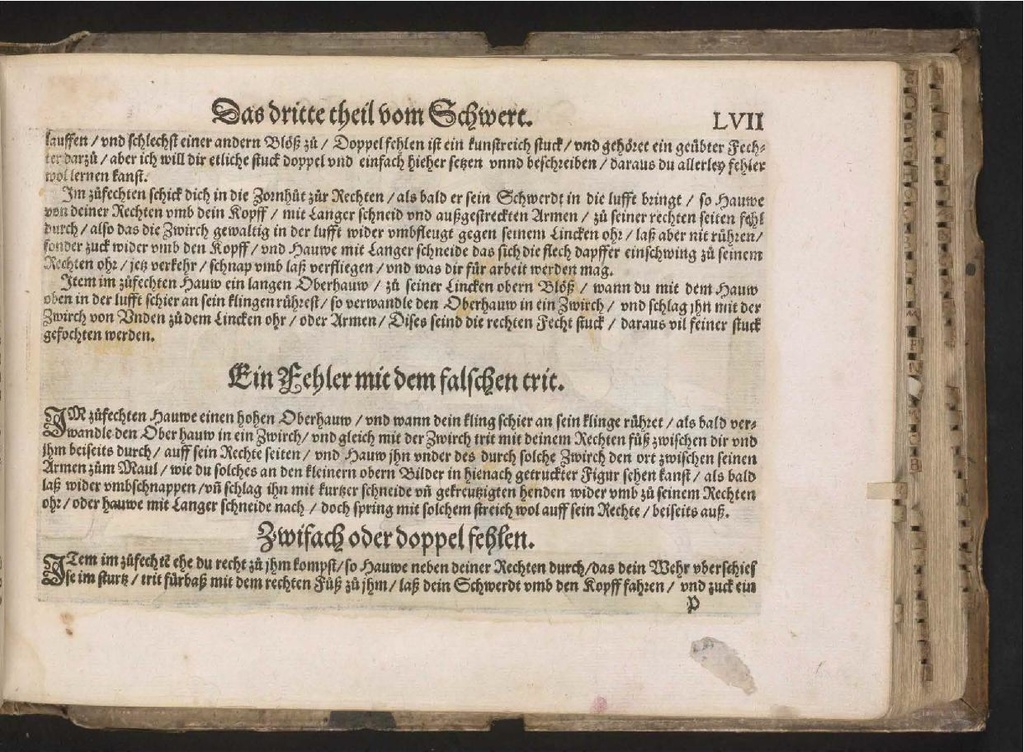 Das dritte theil vom Schwert.
LVII
lauffen / vnd schlechst einer andern Blöß zů / Doppel fehlen ist ein kunstreich stuck / vnd gehöret ein geübter Fech-
ter darzů / aber ich will dir etliche stuck doppel vnd einfach hieher setzen vnnd beschreiben / daraus du allerley fehler
wol lernen kanst.
Im zůfechten schick dich in die Zornhůt zůr Rechten / als bald er sein Schwerdt in die lufft bringt / so Hauwe
von deiner Rechten vmb dein Kopff / mit Langer schneid vnd außgestreckten Armen / zů seiner rechten seiten fehl
durch / also das die Zwirch gewaltig in der lufft wider vmbfleugt gegen seinem Lincken ohr / laß aber nit rühren /
sonder zuck wider vmb den Kopff / vnd Hauwe mit Langer schneide das sich die flech dapffer einschwing zů seinem
Rechten ohr / jetz verkehr / schnap vmb laß verfliegen / vnd was dir für arbeit werden mag.
Item im zůfechten Hauw ein langen Oberhauw / zů seiner Lincken obern Blöß / wann du mit dem Hauw
oben in der lufft schier an sein klingen rührest / so verwandle den Oberhauw in ein Zwirch / vnd schlag jhn mit der
Zwirch von Vnden zů dem Lincken ohr / oder Armen / Dises seind die rechten Fecht stuck / daraus vil feiner stuck
gefochten werden.
Ein Fehler mit dem falschen trit.
IM zůfechten Hauwe einen hohen Oberhauw / vnd wann dein kling schier an sein klinge rühret / als bald ver-
wandle den Ober hauw in ein Zwirch / vnd gleich mit der Zwirch trit mit deinem Rechten fůß zwischen dir vnd
jhm beiseits durch / auff sein Rechte seiten / vnd Hauw jhn vnder des durch solche Zwirch den ort zwischen seinen
Armen zům Maul / wie du solches an den kleinern obern Bilder in hienach getruckter Figur sehen kanst / als bald
laß wider vmbschnappen / vñ schlag ihn mit kurtzer schneide vñ gekreutzigten henden wider vmb zů seinem Rechten
ohr / oder hauwe mit Langer schneide nach / doch spring mit solchem streich wol auff sein Rechte / beiseits auß.
Zwifach oder doppel fehlen.
ITem im zůfechtẽ ehe du recht zů jhm kompst / so Hauwe neben deiner Rechten durch / das dein Wehr vberschies
se im sturtz / trit fürbaß mit dem rechten Fůß zů jhm / laß dein Schwerdt vmb den Kopff fahren / vnd zuck ein
P